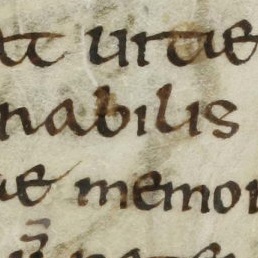 at urtae
nabilis
ae memor